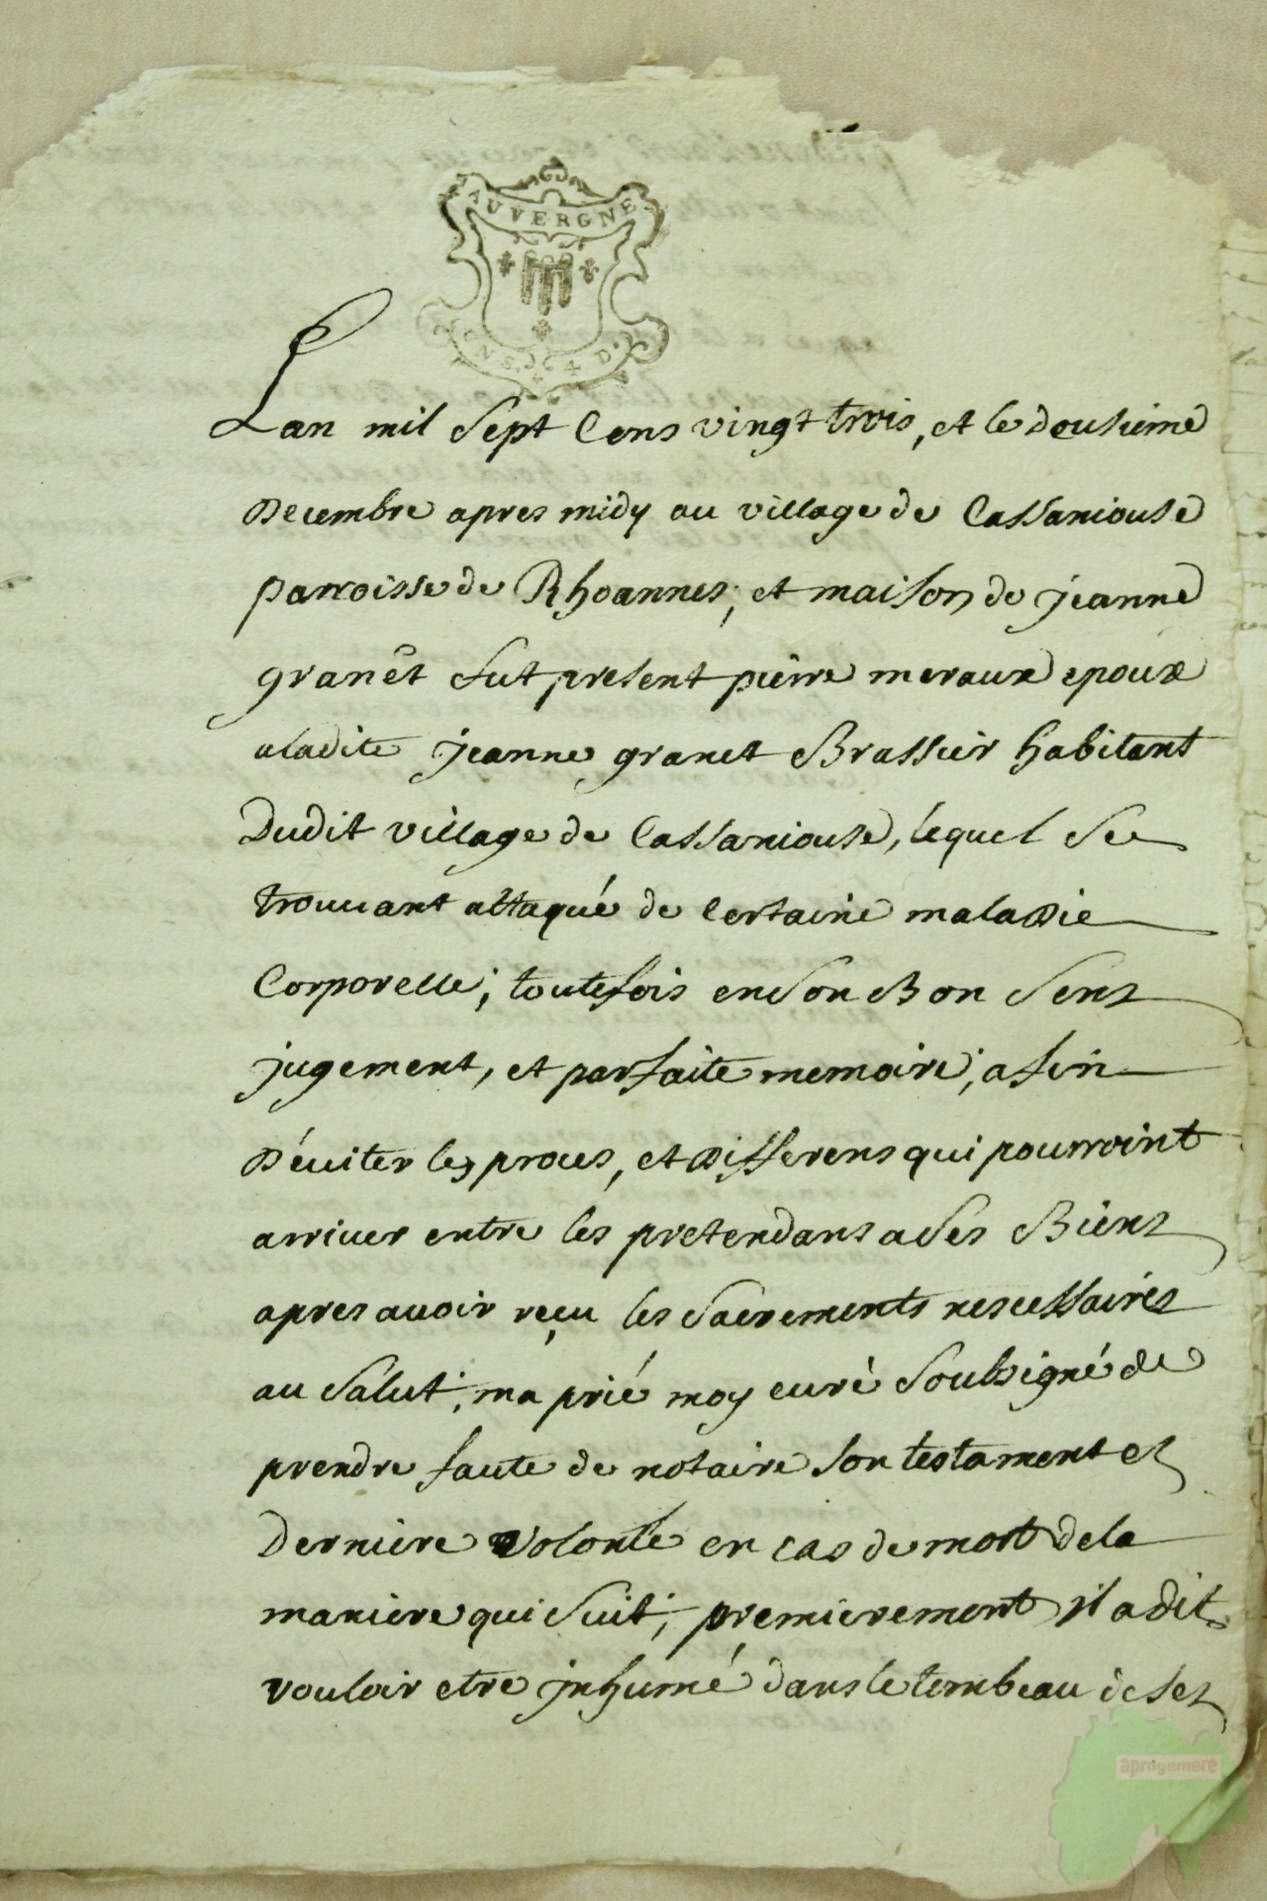 AUVERGNE
Lan mil sept Cens vingt trois, et le deusieme
Decembre apres midy au village de Cassaniouse
parroisse de Rhoannes, et maison de jeanne
granet fut present pierre meraux epoux
a ladite jeanne granet Brassier habitant
Dudit village de Cassaniouse, lequel se
trouuant attaqué de Certaine maladie
Corporelle; toutefois en son Bon sens
jugement, et parfaite memoire, afin
d'éuiter les proces, et differens qui pourroint
arriuer entre les pretendans a ses Biens
apres auoir reçu les sacrements nescessaires
au salut; ma prié moy curé soubsigné de
prendre faute de notaire son testament et
Derniere volonté en cas de mort de la
maniere qui suit; premierement il a dit
vouloir etre jnhumé dans le tombeau de ses
aprogemere